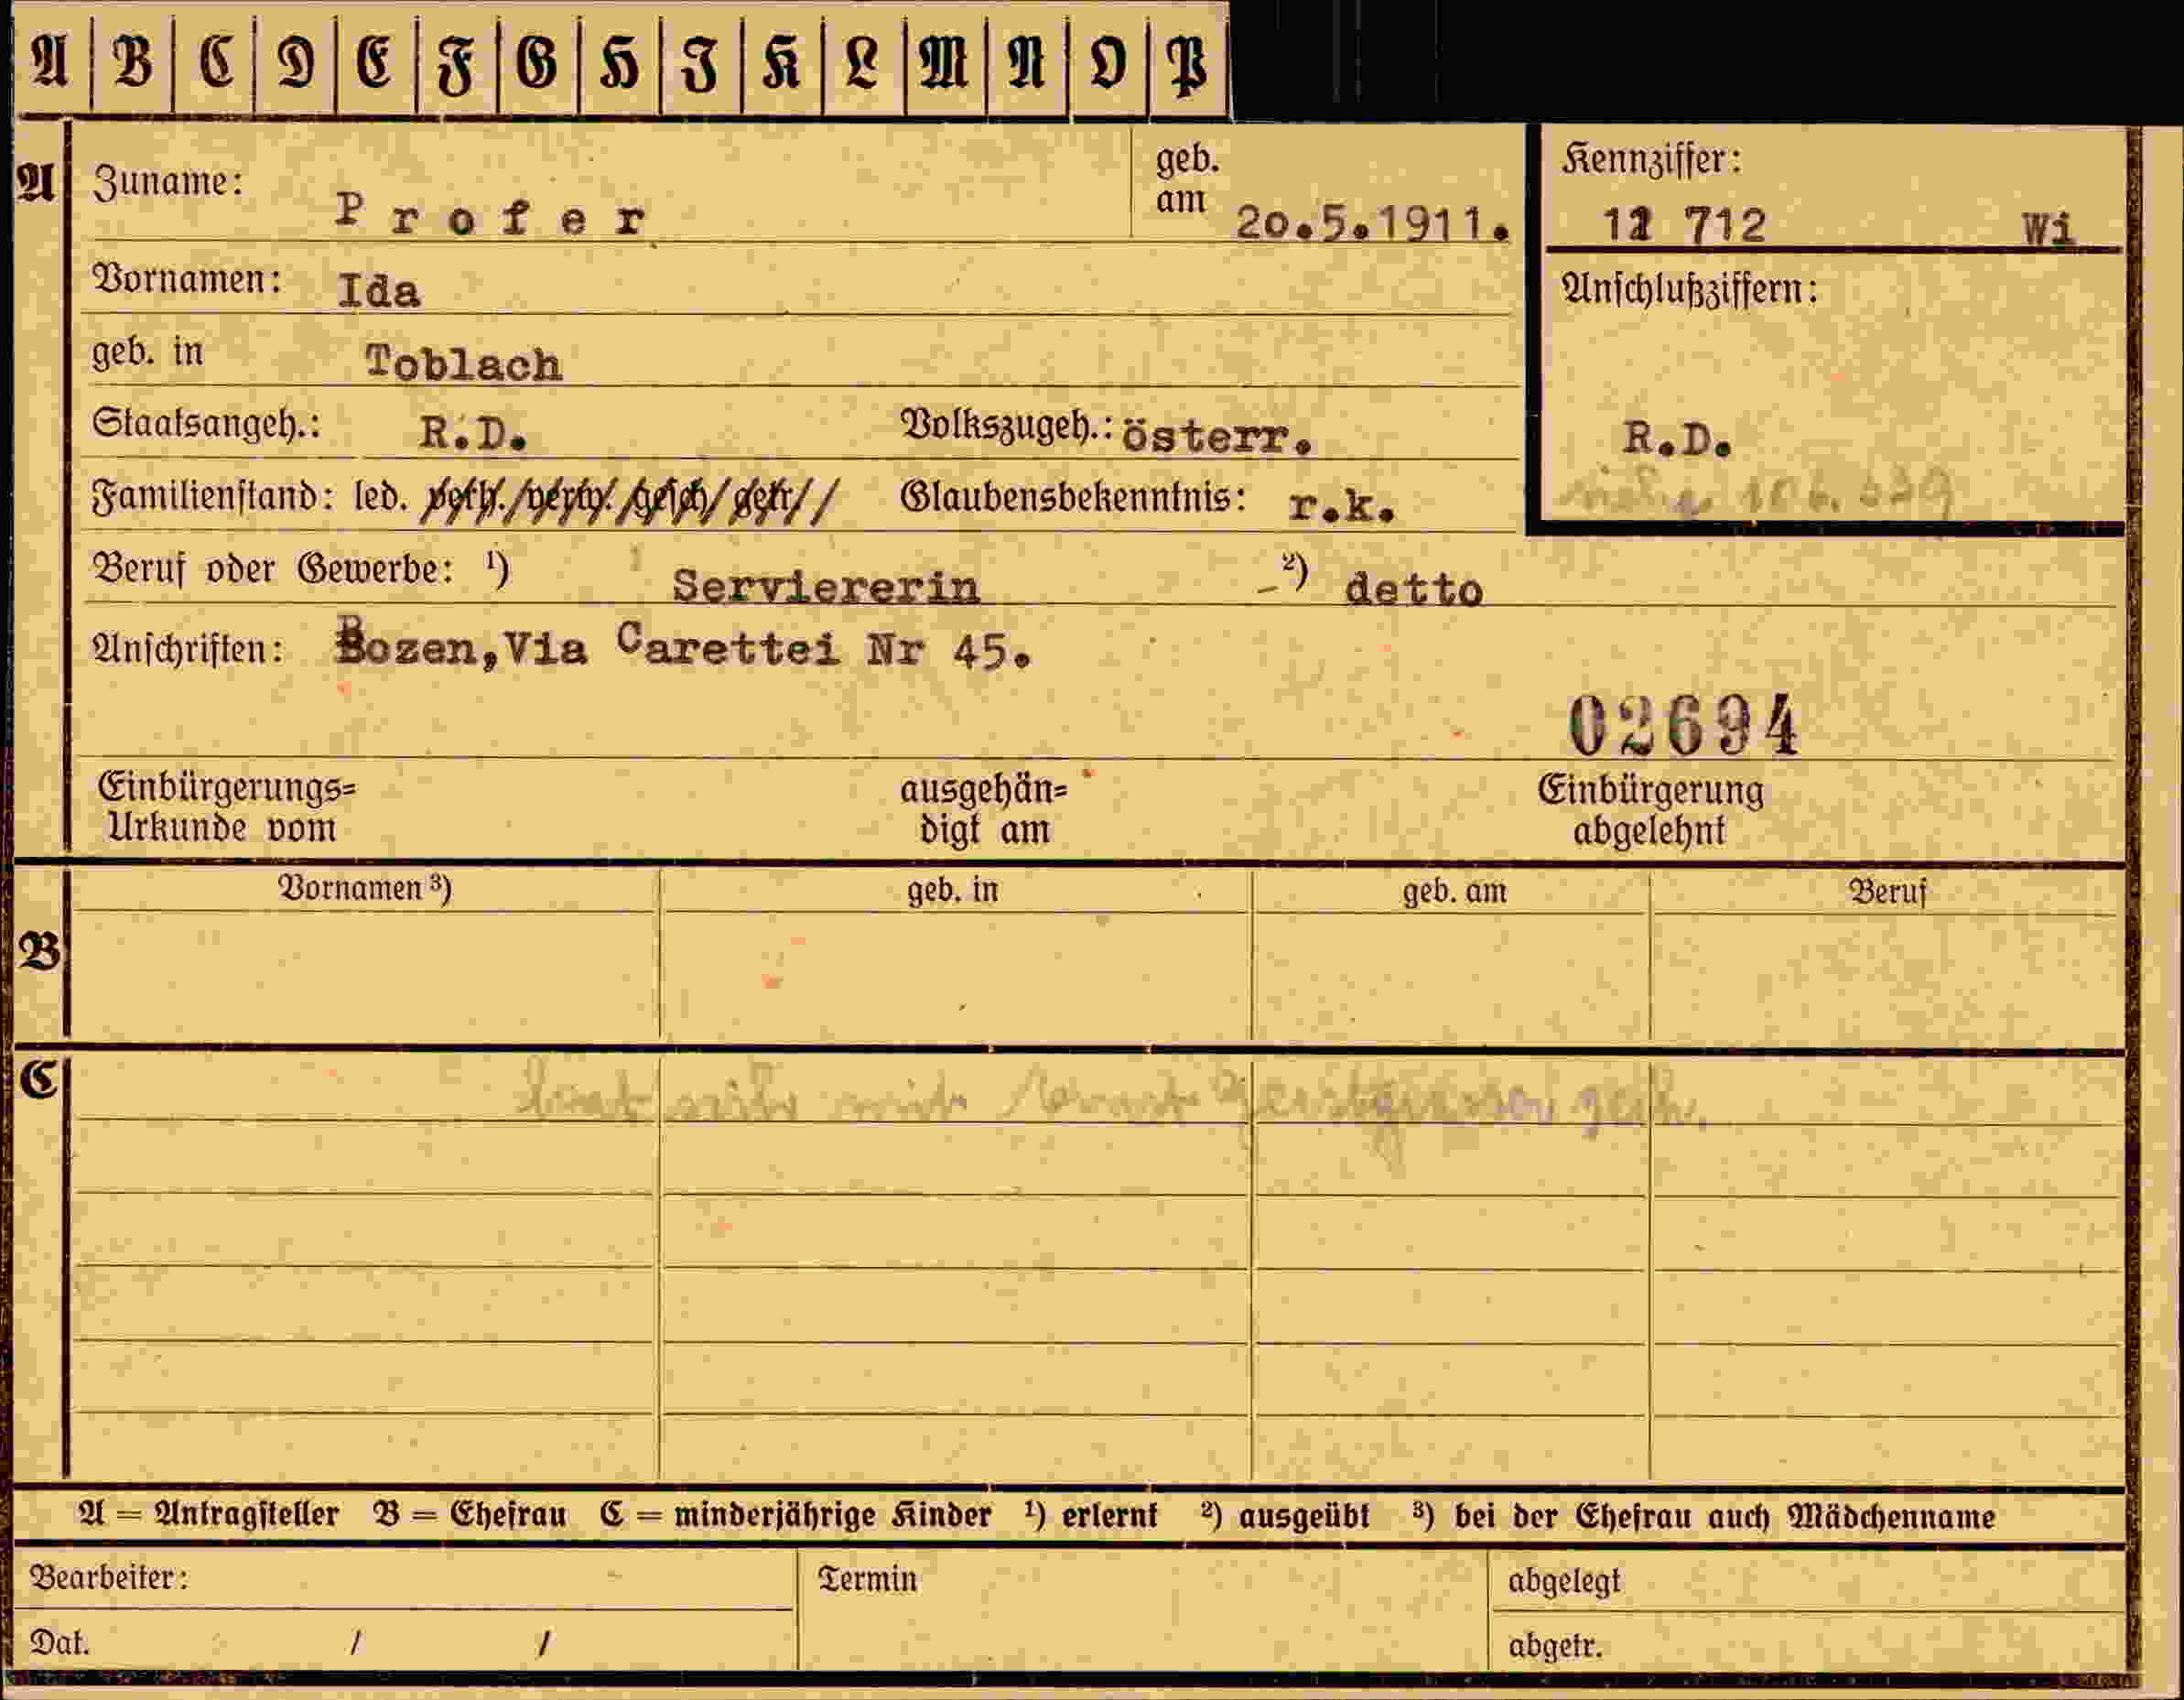 A B C D E F G H I K L M N O P
A
Zuname: Profer
geb. am 20.5.1911.
Kennziffer:
11 712 Wi
Vornamen: Ida
Anschlußziffern:
geb. in Toblach
Staatsangeh.: R.D. Volkszugeh.: österr.
R.D.
Familienstand: led. verh./verw./gesch/getr// Glaubensbekenntnis: r.k.
106.339
Beruf oder Gewerbe: ¹) Serviererin -²) detto
Anschriften: Bozen,Via Carettei Nr 45.
02694
Einbürgerungs=
Urkunde vom
ausgehän=
digt am
Einbürgerung
abgelehnt
B
Vornamen ³) geb. in geb. am Beruf
C
hat sich mit
A = Antragsteller B = Ehefrau C = minderjährige Kinder ¹) erlernt ²) ausgeübt ³) bei der Ehefrau auch Mädchenname
Bearbeiter: Termin abgelegt
Dat. / / abgetr.